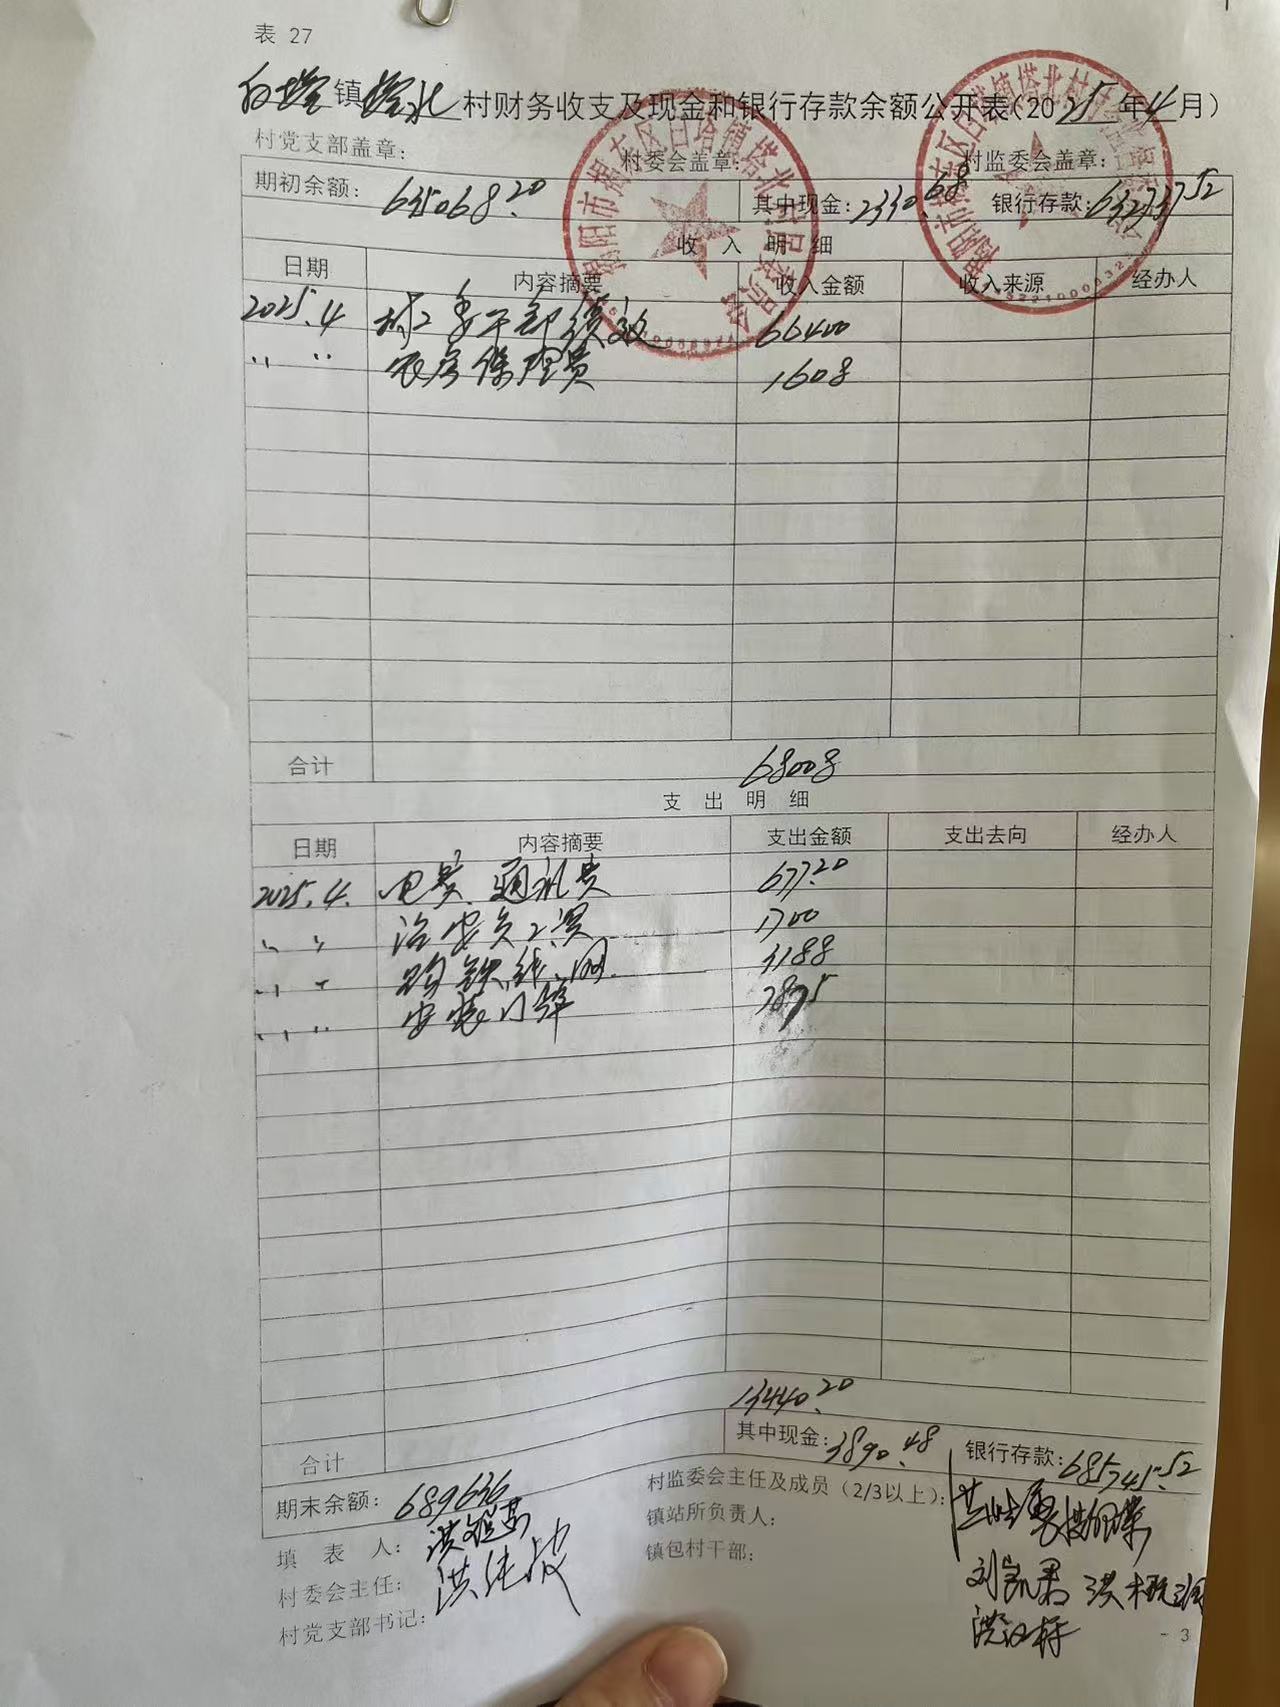 表 27
白塔镇塔北村财务收支及现金和银行存款余额公开表(2025年4月)
村党支部盖章: 村委会盖章: 村监委会盖章:
期初余额: 635068.20 其中现金:2330.68 银行存款:632737.52
收入明细
日期 内容摘要 收入金额 收入来源 经办人
2025.4 村工委干部绩效 66400
〃 〃 农房保险员 1608
合计 68008
支出明细
日期 内容摘要 支出金额 支出去向 经办人
2025.4. 电费、通讯费 677.20
〃 〃 治安员工资 1700
〃 〃 购铁线、网 3188
〃 〃 安装门 7875
13440.20
合计 其中现金:3890.48 银行存款:685745.52
期末余额: 689636
村监委会主任及成员(2/3以上):
填表人: 洪
镇站所负责人:
村委会主任: 洪
镇包村干部:
刘凯君 洪
村党支部书记:
洪汉
- 3